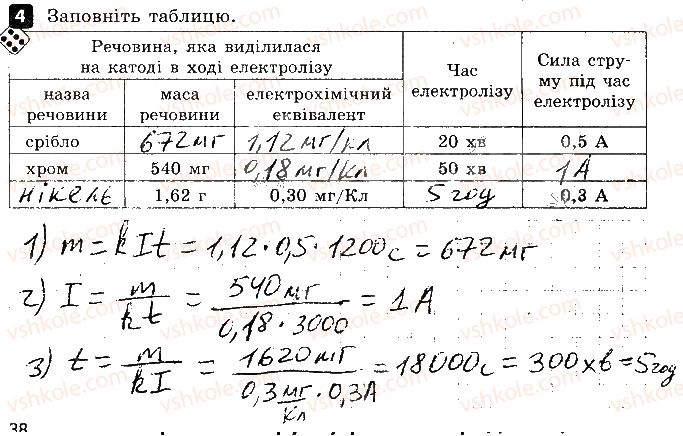 4 Заповніть таблицю.
Речовина, яка виділилася на катоді в ході електролізу | Час електролізу | Сила струму під час електролізу
назва речовини | маса речовини | електрохімічний еквівалент
срібло | 672 мг | 1,12 мг/кл | 20 хв | 0,5 А
хром | 540 мг | 0,18 мг/кл | 50 хв | 1 А
нікель | 1,62 г | 0,30 мг/Кл | 5 год | 0,3 А
1) m = kIt = 1,12 · 0,5 · 1200 с = 672 мг
2) I = m / kt = 540 мг / 0,18 · 3000 = 1 А
3) t = m / kI = 1620 мг / 0,3 мг/Кл · 0,3 А = 18000 с = 300 хв = 5 год
38
vshkole.com